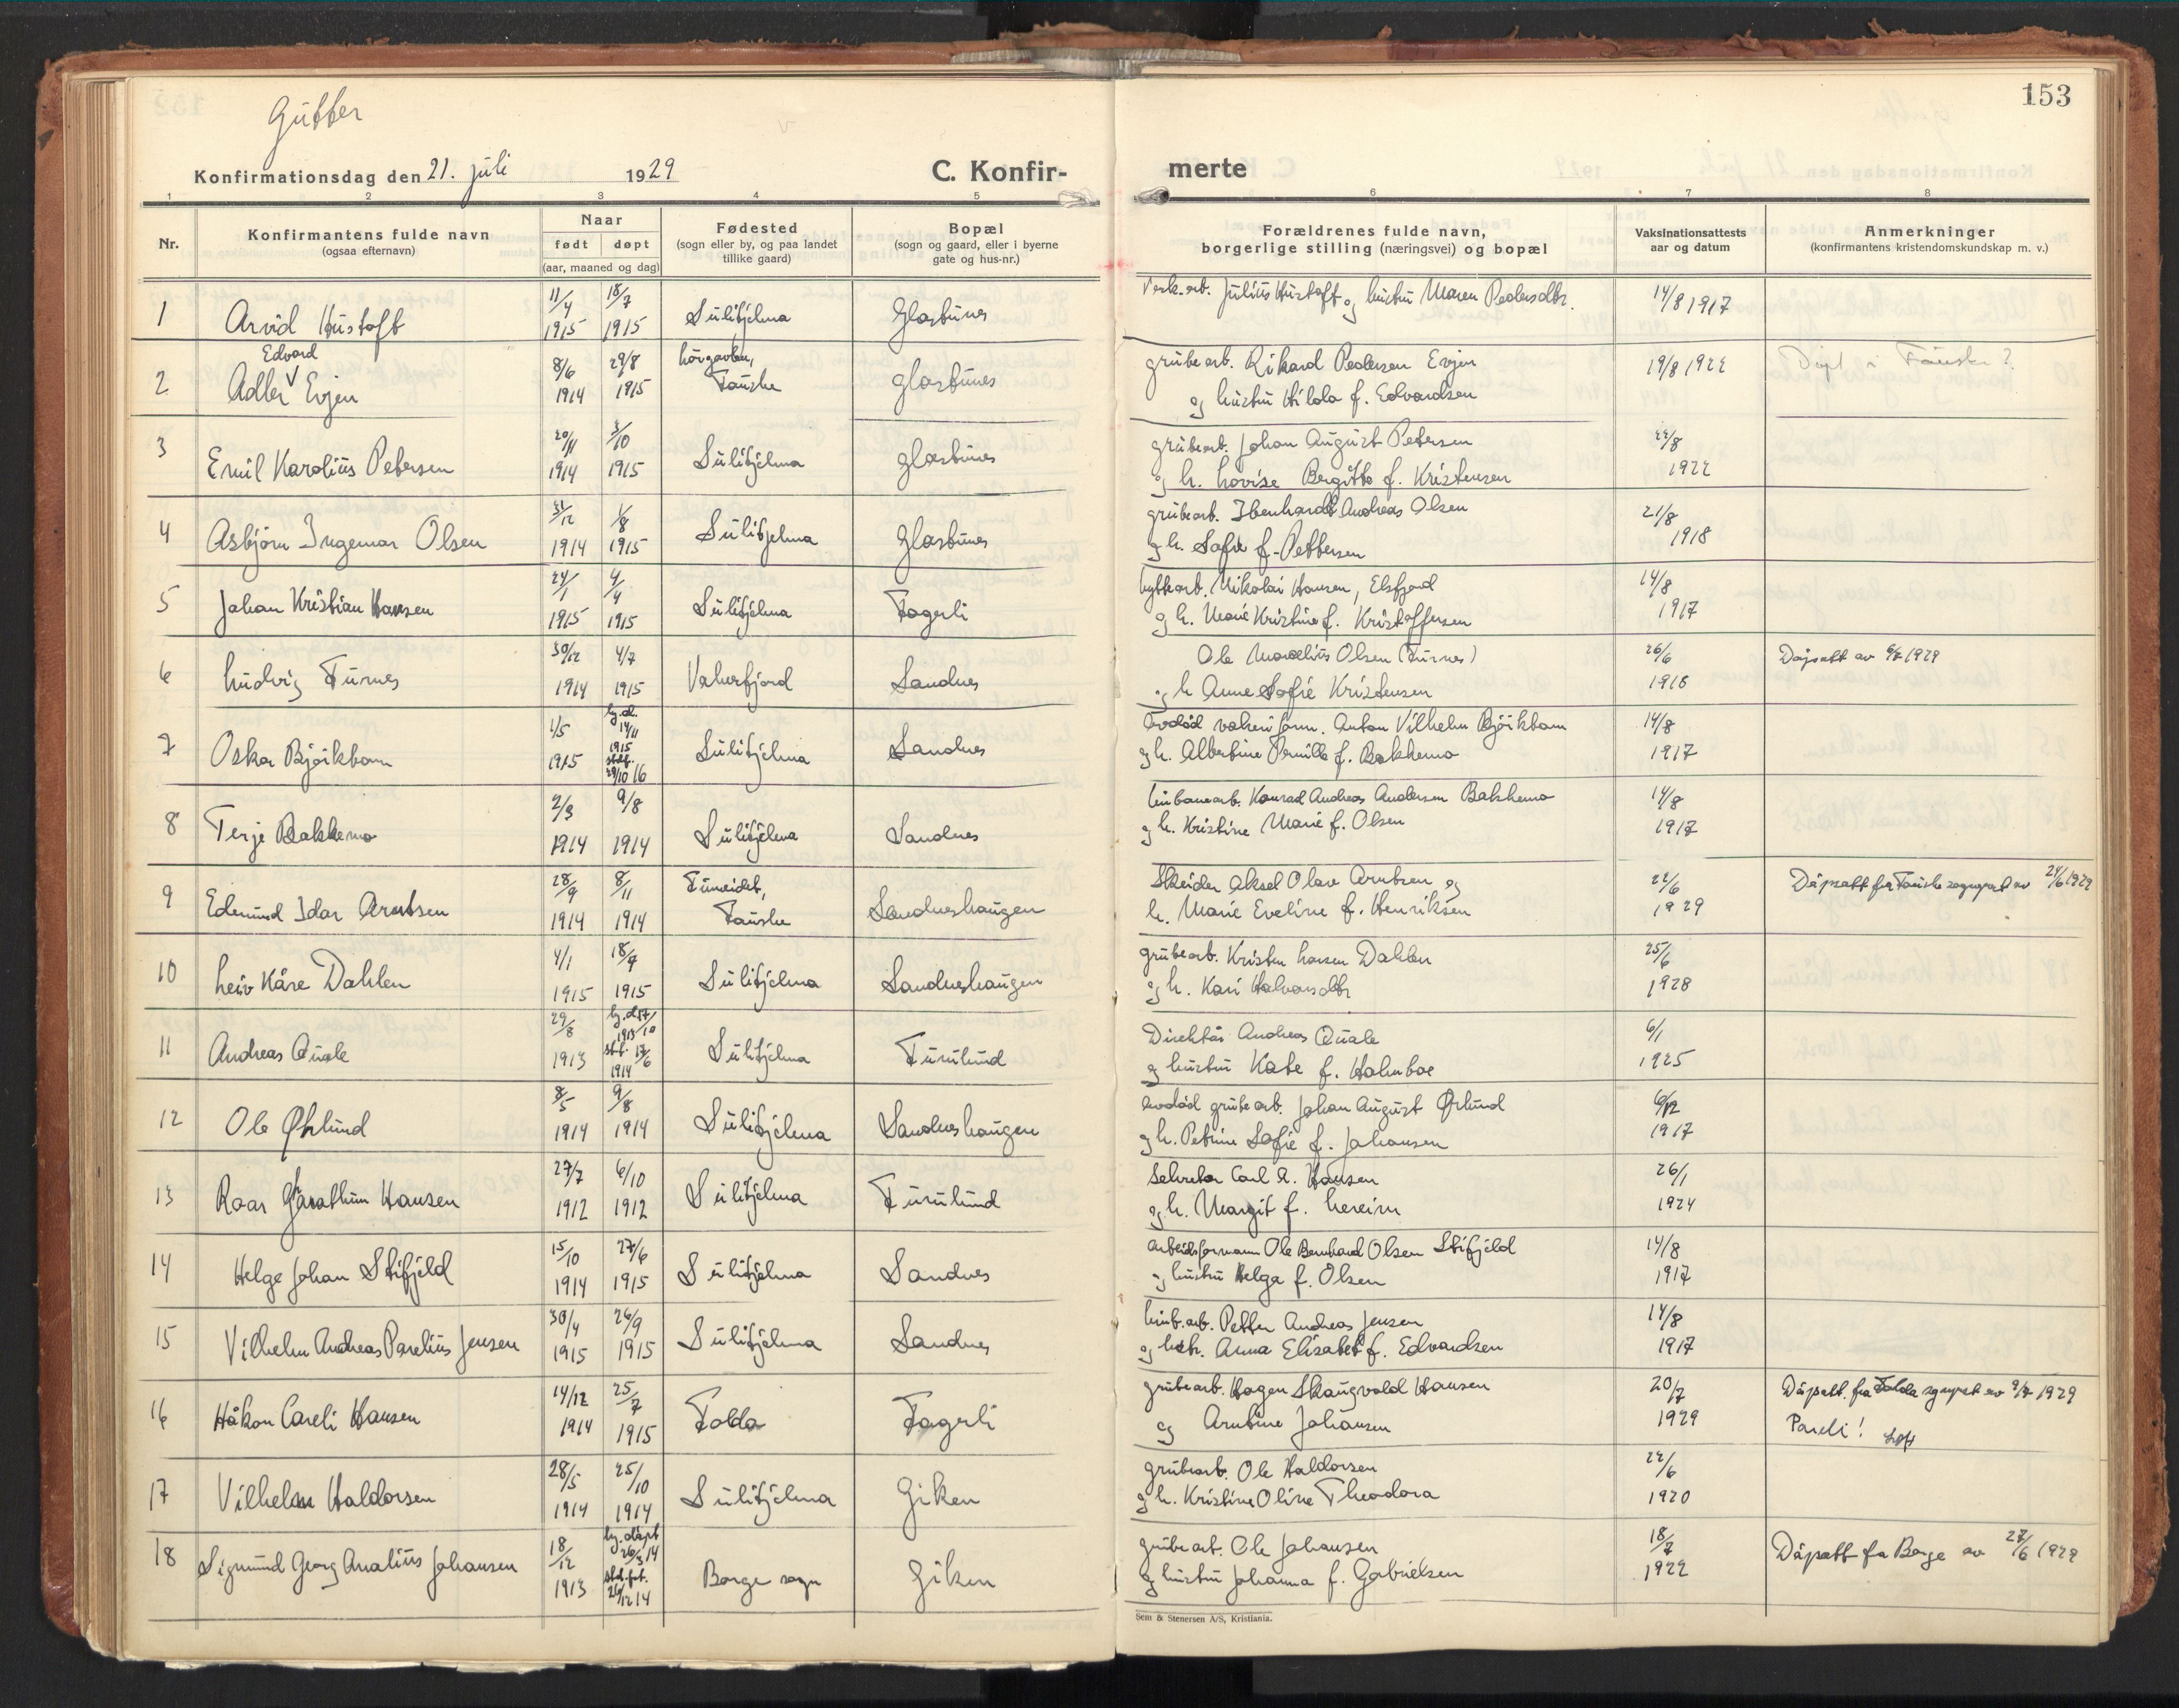 153
Gutter
Konfirmationsdag den 21. juli 1929
C. Konfir-
merte
1 2 3 4 5 6 7 8
Nr.
Konfirmantens fulde navn
(ogsaa efternavn)
Naar
født døpt
(aar, maaned og dag)
Fødested
(sogn eller by, og paa landet
tillike gaard)
Bopæl
(sogn og gaard, eller i byerne
gate og hus-nr.)
Forældrenes fulde navn,
borgerlige stilling (næringsvei) og bopæl
Vaksinationsattests
aar og datum
Anmerkninger
(konfirmantens kristendomskundskap m. v.)
1 Arvid Hustoft 11/4 1915 18/7 1915 Sulitjelma Glastunes
Verk.arb. Julius Hustoft og hustru Maren Pedersdtr. 14/8 1917
2 Adler Edvard Evjen 8/6 1914 29/8 1915 Fauske Glastunes
grubearb. Rikard Pedersen Evjen
og hustru Hilda f. Edvardsen 19/8 1922 Døpt i Fauske?
3 Emil Karolius Petersen 20/11 1914 3/10 1915 Sulitjelma Glastunes
grubearb. Johan August Petersen
og h. Lovise Bergitte f. Kristensen 22/8 1922
4 Asbjørn Ingemar Olsen 31/12 1914 1/8 1915 Sulitjelma Glastunes
grubearb. Ibenhardt Andreas Olsen
og h. Sofie f. Pettersen 21/8 1918
5 Johan Kristian Hansen 24/1 1915 4/4 1915 Sulitjelma Fagerli
hyttearb. Nikolai Hansen, Elsfjord
og h. Marie Kristine f. Kristoffersen 14/8 1917
6 Ludvig Furnes 30/12 1914 4/7 1915 Valnesfjord Sandnes
Ole Marselius Olsen (Furnes)
og h Anne Sofie Kristensen 26/6 1918 Dåpsatt av 6/7 1929
7 Oskar Bjørkbom 1/5 1915 hj.d. 14/11 1915 stadf. 29/10 16 Sulitjelma Sandnes
avdød Anton Vilhelm Bjørkbom
og h. Albertine Pernille f. Bakkemo 14/8 1917
8 Terje Bakkemo 2/3 1914 9/8 1914 Sulitjelma Sandnes
linbanearb. Konrad Andreas Andersen Bakkemo
og h. Kristine Marie f. Olsen 14/8 1917
9 Edmund Idar Arntsen 28/9 1914 8/11 1914 Finneidet, Fauske Sandneshaugen
Skeider Aksel Olav Arntsen og
h. Marie Eveline f. Henriksen 22/6 1929 Dåpsatt fra Fauske sogneprest av 24/6 1929
10 Leiv Kåre Dahlen 4/1 1915 18/7 1915 Sulitjelma Sandneshaugen
grubearb. Kristen Larsen Dahlen
og h. Kari Halvorsdtr 25/6 1928
11 Andreas Quale 29/8 1913 hj.d. 17/10 1913 stf. 17/6 1914 Sulitjelma Furulund
Direktør Andreas Quale
og hustru Kate f. Holmboe 6/1 1925
12 Ole Ørlund 8/5 1914 9/8 1914 Sulitjelma Sandneshaugen
avdød grubearb. Johan August Ørlund
og h. Petrine Sofie f. Johansen 6/12 1917
13 Roar Hansen 27/7 1912 6/10 1912 Sulitjelma Furulund
Sekretær Carl A. Hansen
og h. Margit f. 26/1 1924
14 Helge Johan Stifjeld 15/10 1914 27/6 1915 Sulitjelma Sandnes
arbeidsformann Ole Bernhard Olsen Stifjeld
og hustru Helga f. Olsen 14/8 1917
15 Vilhelm Andreas Parelius Jensen 30/4 1915 26/9 1915 Sulitjelma Sandnes
linb.arb. Petter Andreas Jensen
og hstr. Anna Elisabet f. Edvardsen 14/8 1917
16 Håkon Careli Hansen 14/12 1914 25/7 1915 Folda Fagerli
grubearb. Hagen Skaugvold Hansen
og Arntine Johansen 20/7 1929 Dåpsatt. fra Folda sogneprest av 9/7 1929
Pareli!
17 Vilhelm Haldorsen 28/5 1914 25/10 1914 Sulitjelma Giken
grubearb. Ole Haldorsen
og h. Kristine Oline Theodora 22/6 1920
18 Sigmund Georg Analius Johansen 18/12 1913 hj.døpt 26/3 14 stadf. 26/12 14 Borge sogn Giken
grubearb. Ole Johansen
og hustru Johanna f. Gabrielsen 18/7 1922 Dåpsatt fra Borge av 27/6 1929
Sem & Stenersen A/S, Kristiania.